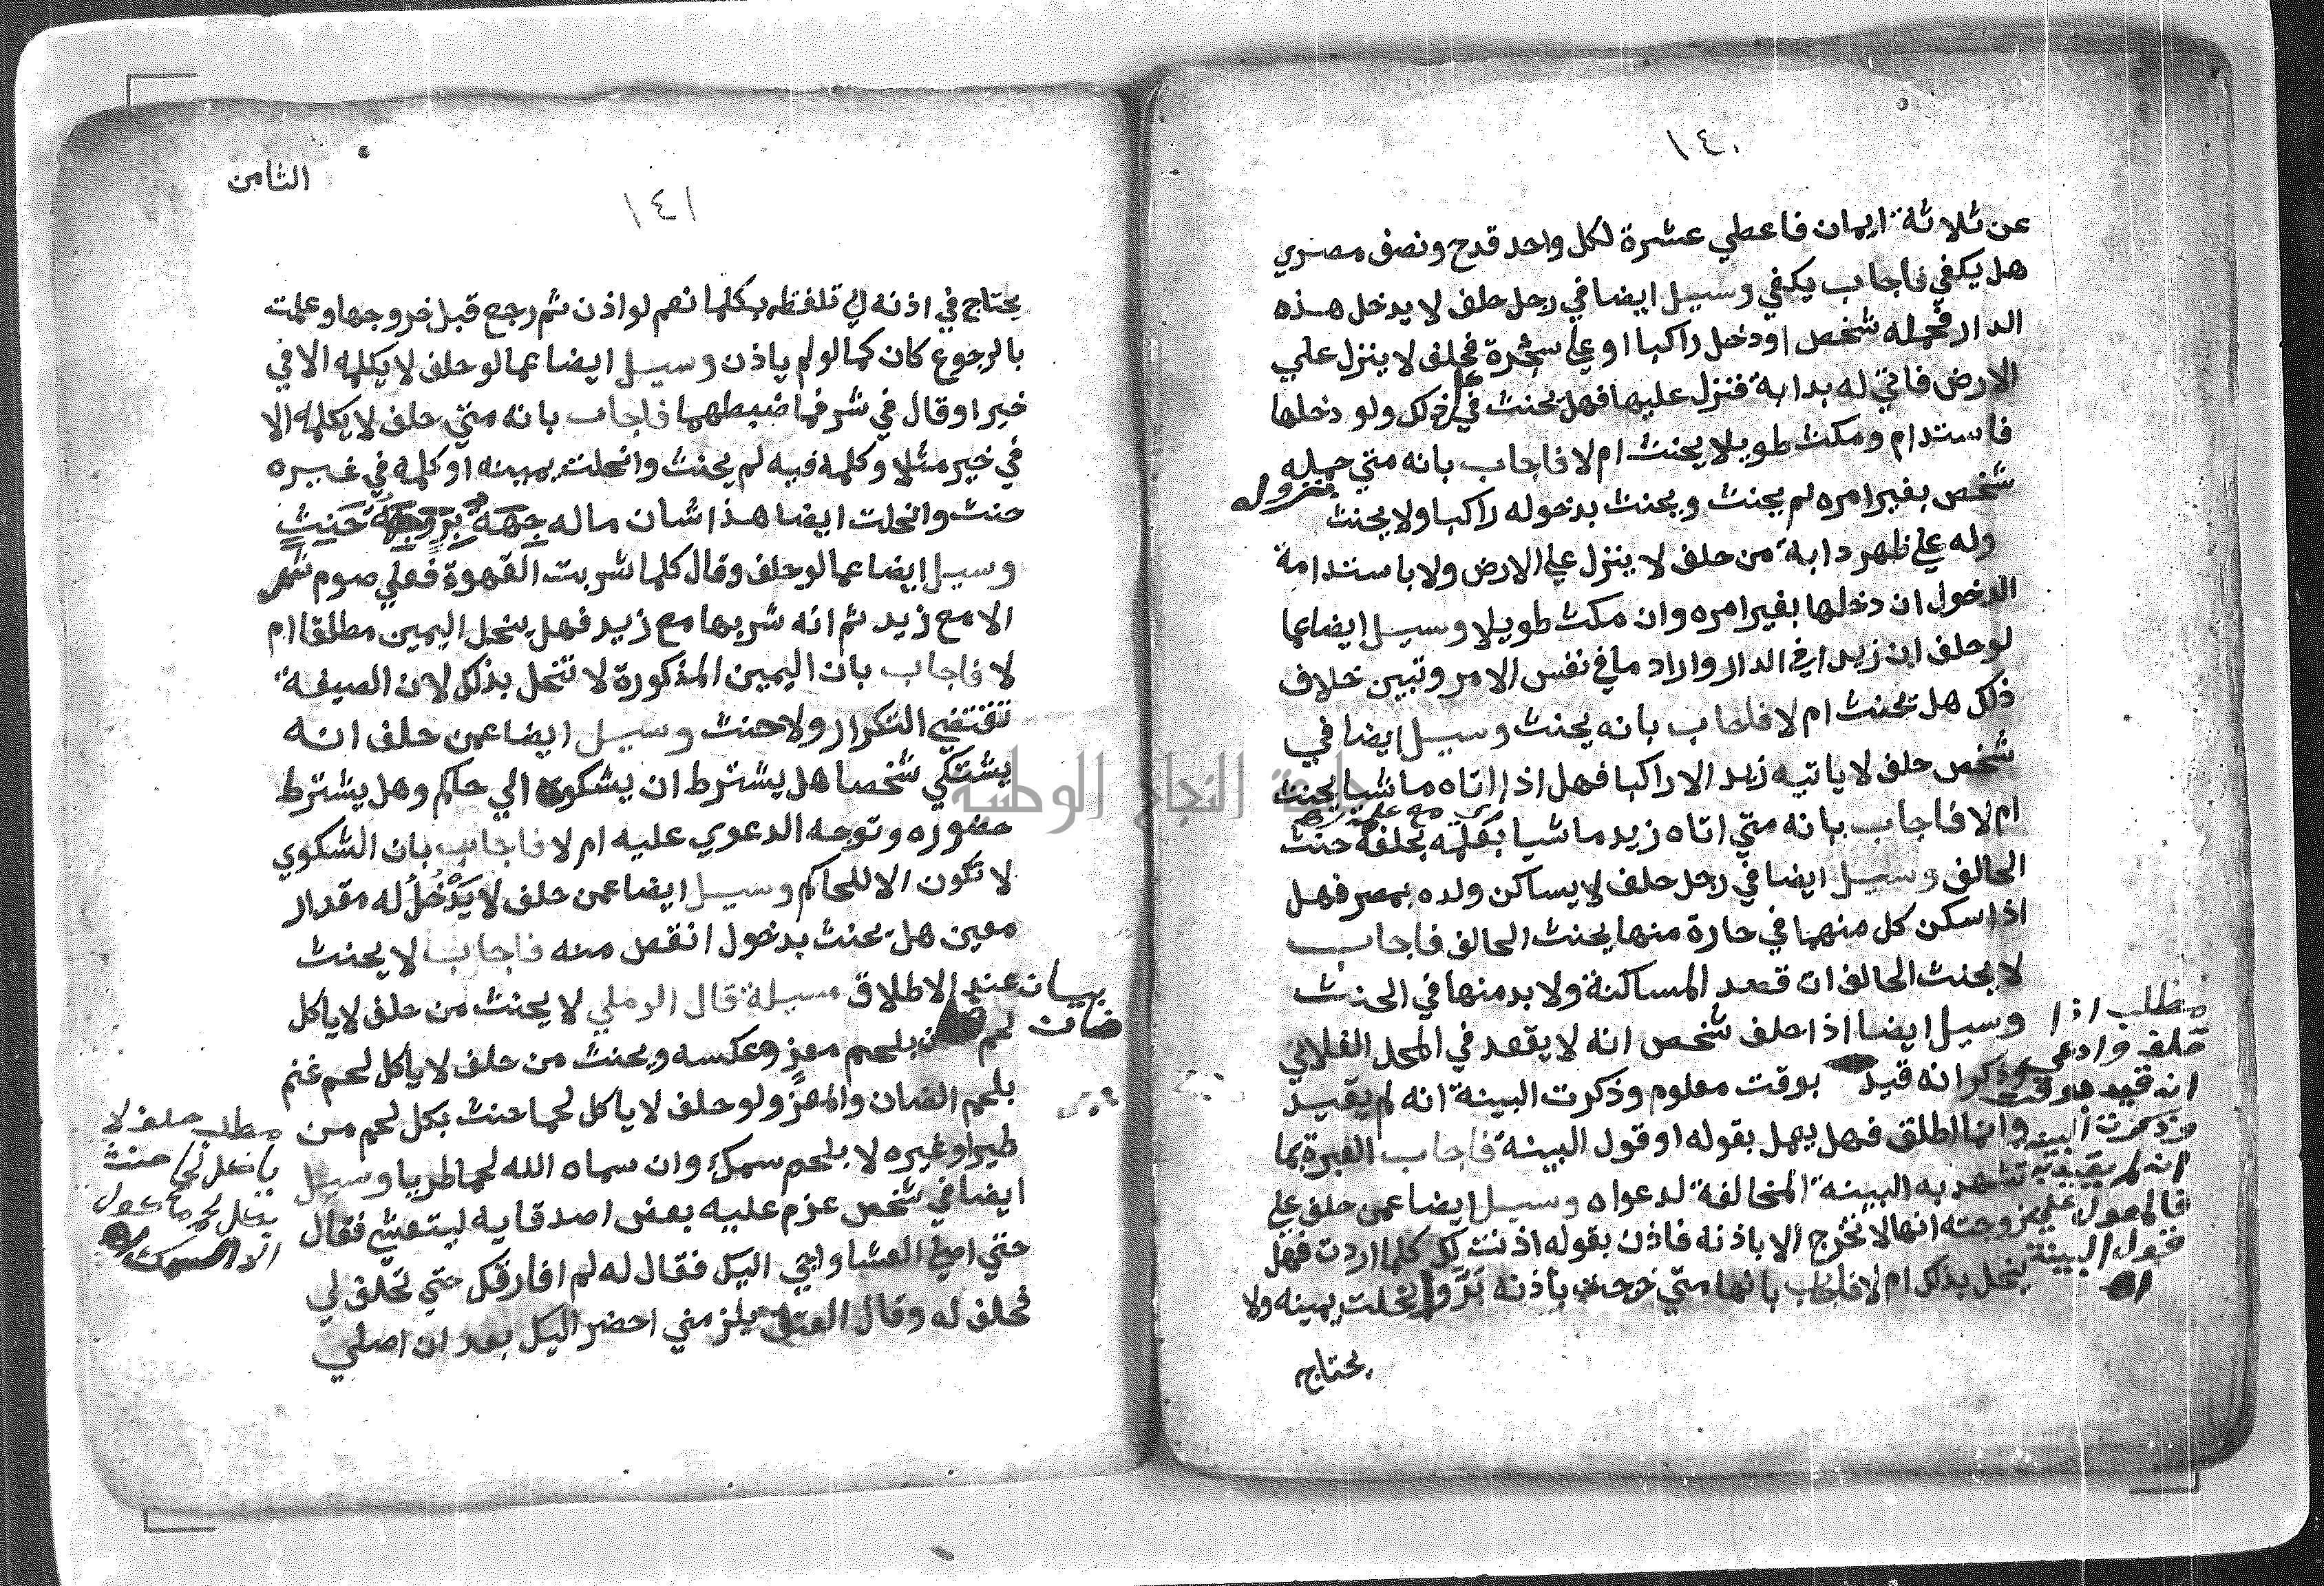 ١٤٠
عن ثلاثة ايمان فاعطي عشرة لكل واحد قدح ونصف مصري
هل يكفي فاجاب يكفي وسيل ايضا في رجل حلف لا يدخل هذه
الدار فحمله شخص اودخل راكبا او علي شجرة فحلف لا ينزل علي
الارض فاتي له بدابة فنزل عليها فهل يحنث في كل ذلك ولو دخلها
فاستدام ومكث طويلا يحنث ام لا فاجاب بانه متي حمله
شخص بغير امره لم يحنث ويحنث بدخوله راكبا ولا يحنث بنزوله
وله علي ظهر دابة من حلف لا ينزل علي الارض ولا باستدامة
الدخول ان دخلها بغير امره وان مكث طويلا وسيل ايضا عما
لو حلف ان زيدا في الدار واراد ما في نفس الامر وتبين خلاف
ذلك هل يحنث ام لا فاجاب بانه يحنث وسيل ايضا في
شخص حلف لا ياتيه زيد الا راكبا فهل اذا اتاه ماشيا يحنث
ام لا فاجاب بانه متي اتاه زيد ماشيا بحلفه حنث
الحالف وسيل ايضا في رجل حلف لا يساكن ولده بمصر فهل
اذا سكن كل منهما في حارة منها يحنث الحالف فاجاب
لا يحنث الحالف ان قصد المساكنة ولا بد منها في الحنث
وسيل ايضا اذا حلف شخص انه لا يقعد في المحل الفلاني
وذكر انه قيد بوقت معلوم وذكرت البينة انه لم يقيد
وانما اطلق فهل يعمل بقوله او قول البينة فاجاب العبرة بما
تشهد به البينة المخالفة لدعواه وسيل ايضا عمن حلف علي
زوجته انها لا تخرج الا باذنه فاذن بقوله اذنت لك كلما اردت فهل
ينحل بذلك ام لا فاجاب بانها متي خرجت باذنه بر وانحلت يمينه ولا
يحتاج
مطلب اذا
حلف وادعي
انه قيد بوقت
وذكرت البينة
انه لم يقيد
فالمعول علي
قول البينة
الثامن
١٤١
يحتاج في اذنه الي تلفظه بكلما نعم لو اذن ثم رجع قبل خروجها وعلمت
بالرجوع كان كما لو لم ياذن وسيل ايضا عما لو حلف لا يكلمه الا في
خير او قال في شر فما ضبطهما فاجاب بانه متي حلف لا يكلمه الا
في خير مثلا وكلمه فيه لم يحنث وانحلت يمينه او كلمه في غيره
حنث وانحلت ايضا هذا شان ماله جهة بر وجهة حنث
وسيل ايضا عما لو حلف وقال كلما شربت القهوة فعلي صوم شهر
الا مع زيد ثم انه شربها مع زيد فهل ينحل اليمين مطلقا ام
لا فاجاب بان اليمين المذكورة لا تنحل بذلك لان الصيغة
تقتضي التكرار ولا حنث وسيل ايضا عمن حلف انه
يشتكي شخصا هل يشترط ان يشكوه الي حاكم وهل يشترط
حضوره وتوجه الدعوي عليه ام لا فاجاب بان الشكوي
لا تكون الا للحاكم وسيل ايضا عمن حلف لا يدخل له مقدار
معين هل يحنث بدخول انقص منه فاجاب لا يحنث
عند الاطلاق مسيلة قال الرملي لا يحنث من حلف لا ياكل
لحم ضان بلحم معز وعكسه ويحنث من حلف لا ياكل لحم غنم
بلحم الضان والمعز ولو حلف لا ياكل لحما حنث بكل لحم من
طير او غيره لا بلحم سمك وان سماه الله لحما طريا وسيل
ايضا في شخص عزم عليه بعض اصدقايه ليتعشي فقال
حتي اصلي العشا واجي اليك فقال له لم افارقك حتي تحلف لي
فحلف له وقال يلزمني احضر اليك بعد ان اصلي
بيان
ضان
مطلب حلف لا
ياكل لحما حنث
بكل لحم ماكول
الا السمك
جامعة النجاح الوطنية